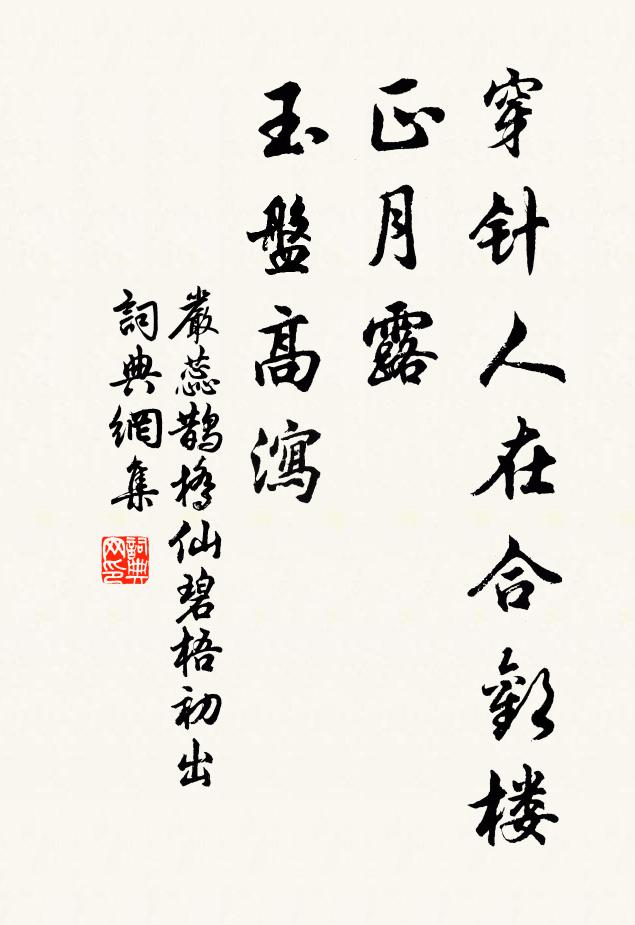 穿针人在合歡楼
正月露
玉盤高瀉
嚴蕊鹊橋仙碧梧初出
詞典網集
詞典网印